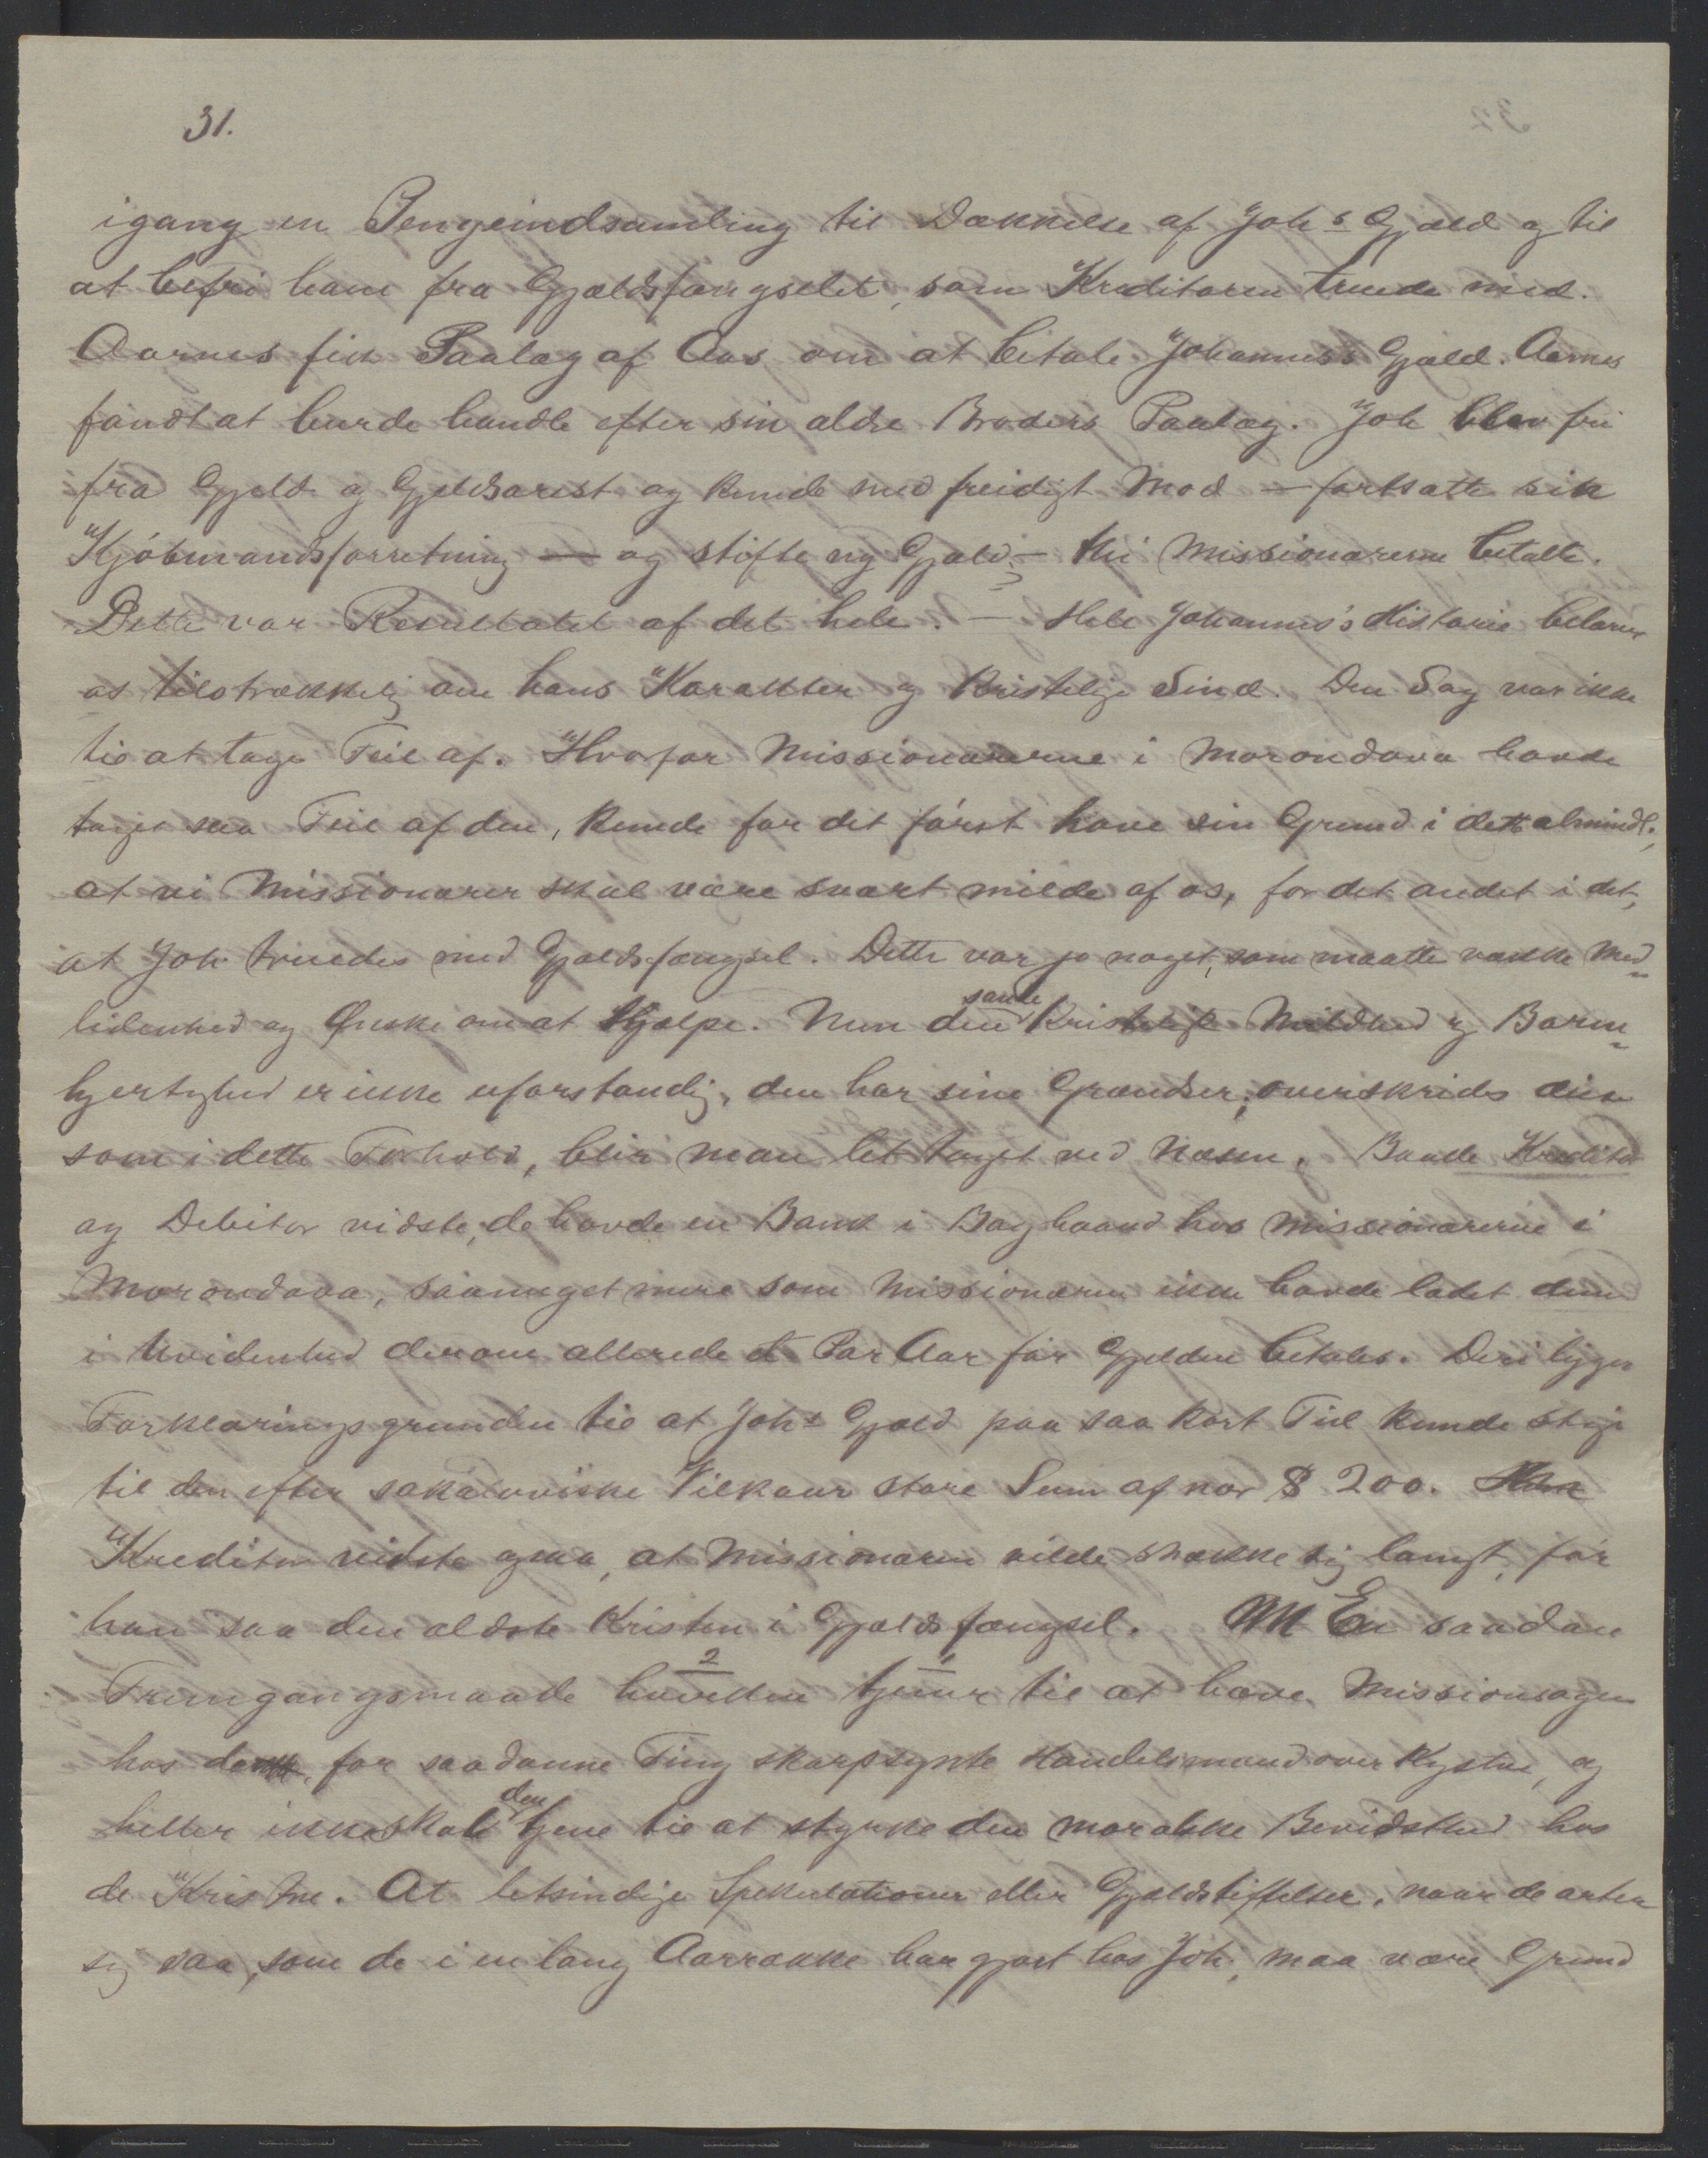 31.
igang en Pengeindsamling til Dækkelse af Johs Gjæld og til
at befri ham fra Gjældsfængselet, som Kreditoren truede med.
Aarnes fik Paalæg af Aas om at betale Johannes's Gjæld. Aarnes
fandt at burde handle efter sin ældre Broders Paalæg. Joh blev fri
fra Gjeld og Gjeldsarest og kunde med freidigt Mod — fortsætte sin
Kjöbmandsforretning — og stifte ny Gjæld; — thi Missionærerne betalte.
Dette var Resultatet af det hele. — Hele Johannes's Historie belærer
os tilstrækkelig om hans Karakter og kristelige Sind. Den Sag var ikke
til at tage Feil af. Hvorfor Missionærerne i Morondava havde
taget saa Feil af den, kunde for det först have sin Grund i dette almindl.,
at vi Missionærer skal være svært milde af os, for det andet i det,
at Joh truedes med Gjældsfængsel. Dette var jo noget, som maatte vække Med„
lidenhed og Ønske om at Hjælpe. Men den sande kristelige Mildhed og Barm„
hjertighed er ikke uforstandig, den har sine Grændser; overskrides disse
som i dette Forhold, blir man let taget ved Næsen. Baade Kreditor
og Debitor vidste, de havde en Bank i Baghaand hos Missionærerne i
Morondava, saameget mere som Missionæren ikke havde ladet dem
i Uvidenhed derom allerede et Par Aar för Gjelden betales. Deri ligger
Forklaringsgrunden til at Johs Gjæld paa saa kort Tid kunde stige
til den efter sakalaviske Vilkaar store Sum af nær $ 200.
Kreditor vidste ogsaa, at Missionæren vilde strække sig langt, för
han saa den ældste Kristen i Gjældsfængsel. En saadan
Fremgangsmaade hverken 2 tjener 1 til at hæve Missionssagen
hos de, for saadanne Ting skarpsynte Handelsmænd over Kysten, og
heller ikke skal den tjene til at styrke den moralske Bevidsthed hos
de Kristne. At letsindige Spekulationer eller Gjældstiftelser, naar de arter
sig saa, som de i en lang Aarrække har gjort hos Joh, maa være Grund